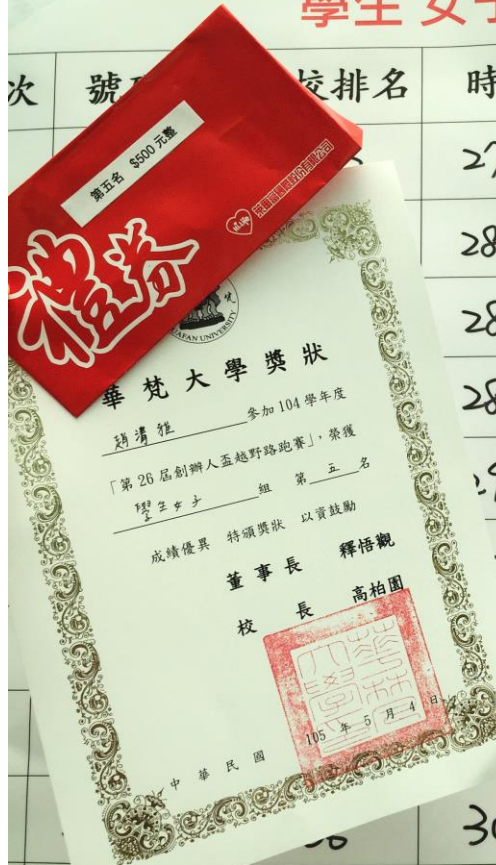 學生 女子
次 號 校排名 時
第五名 $500 元整
禮券
27
28
28
28
HUAFAN UNIVERSITY
華梵大學獎狀
趙清雅 參加 104 學年度
「第 26 屆創辦人盃越野路跑賽」，榮獲
學生女子 組 第 五 名
成績優異 特頒獎狀 以資鼓勵
董事長 釋悟觀
校長 高柏園
中華民國 105 年 5 月 4 日
30